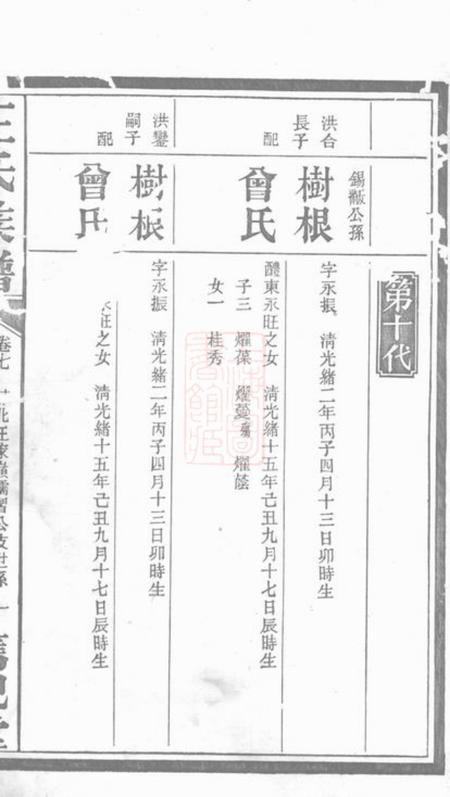 第十代
錫黻公孫
洪合長子
樹根
字永振 清光緒二年丙子四月十三日卯時生
配
曾氏
醴東永旺之女 清光緒十五年己丑九月十七日辰時生
子三 燿葆 燿蔓 燿蔭
女一 桂秀
洪鑾嗣子
樹根
字永振 清光緒二年丙子四月十三日卯時生
配
曾氏
永旺之女 清光緒十五年己丑九月十七日辰時生
王氏族譜
卷七